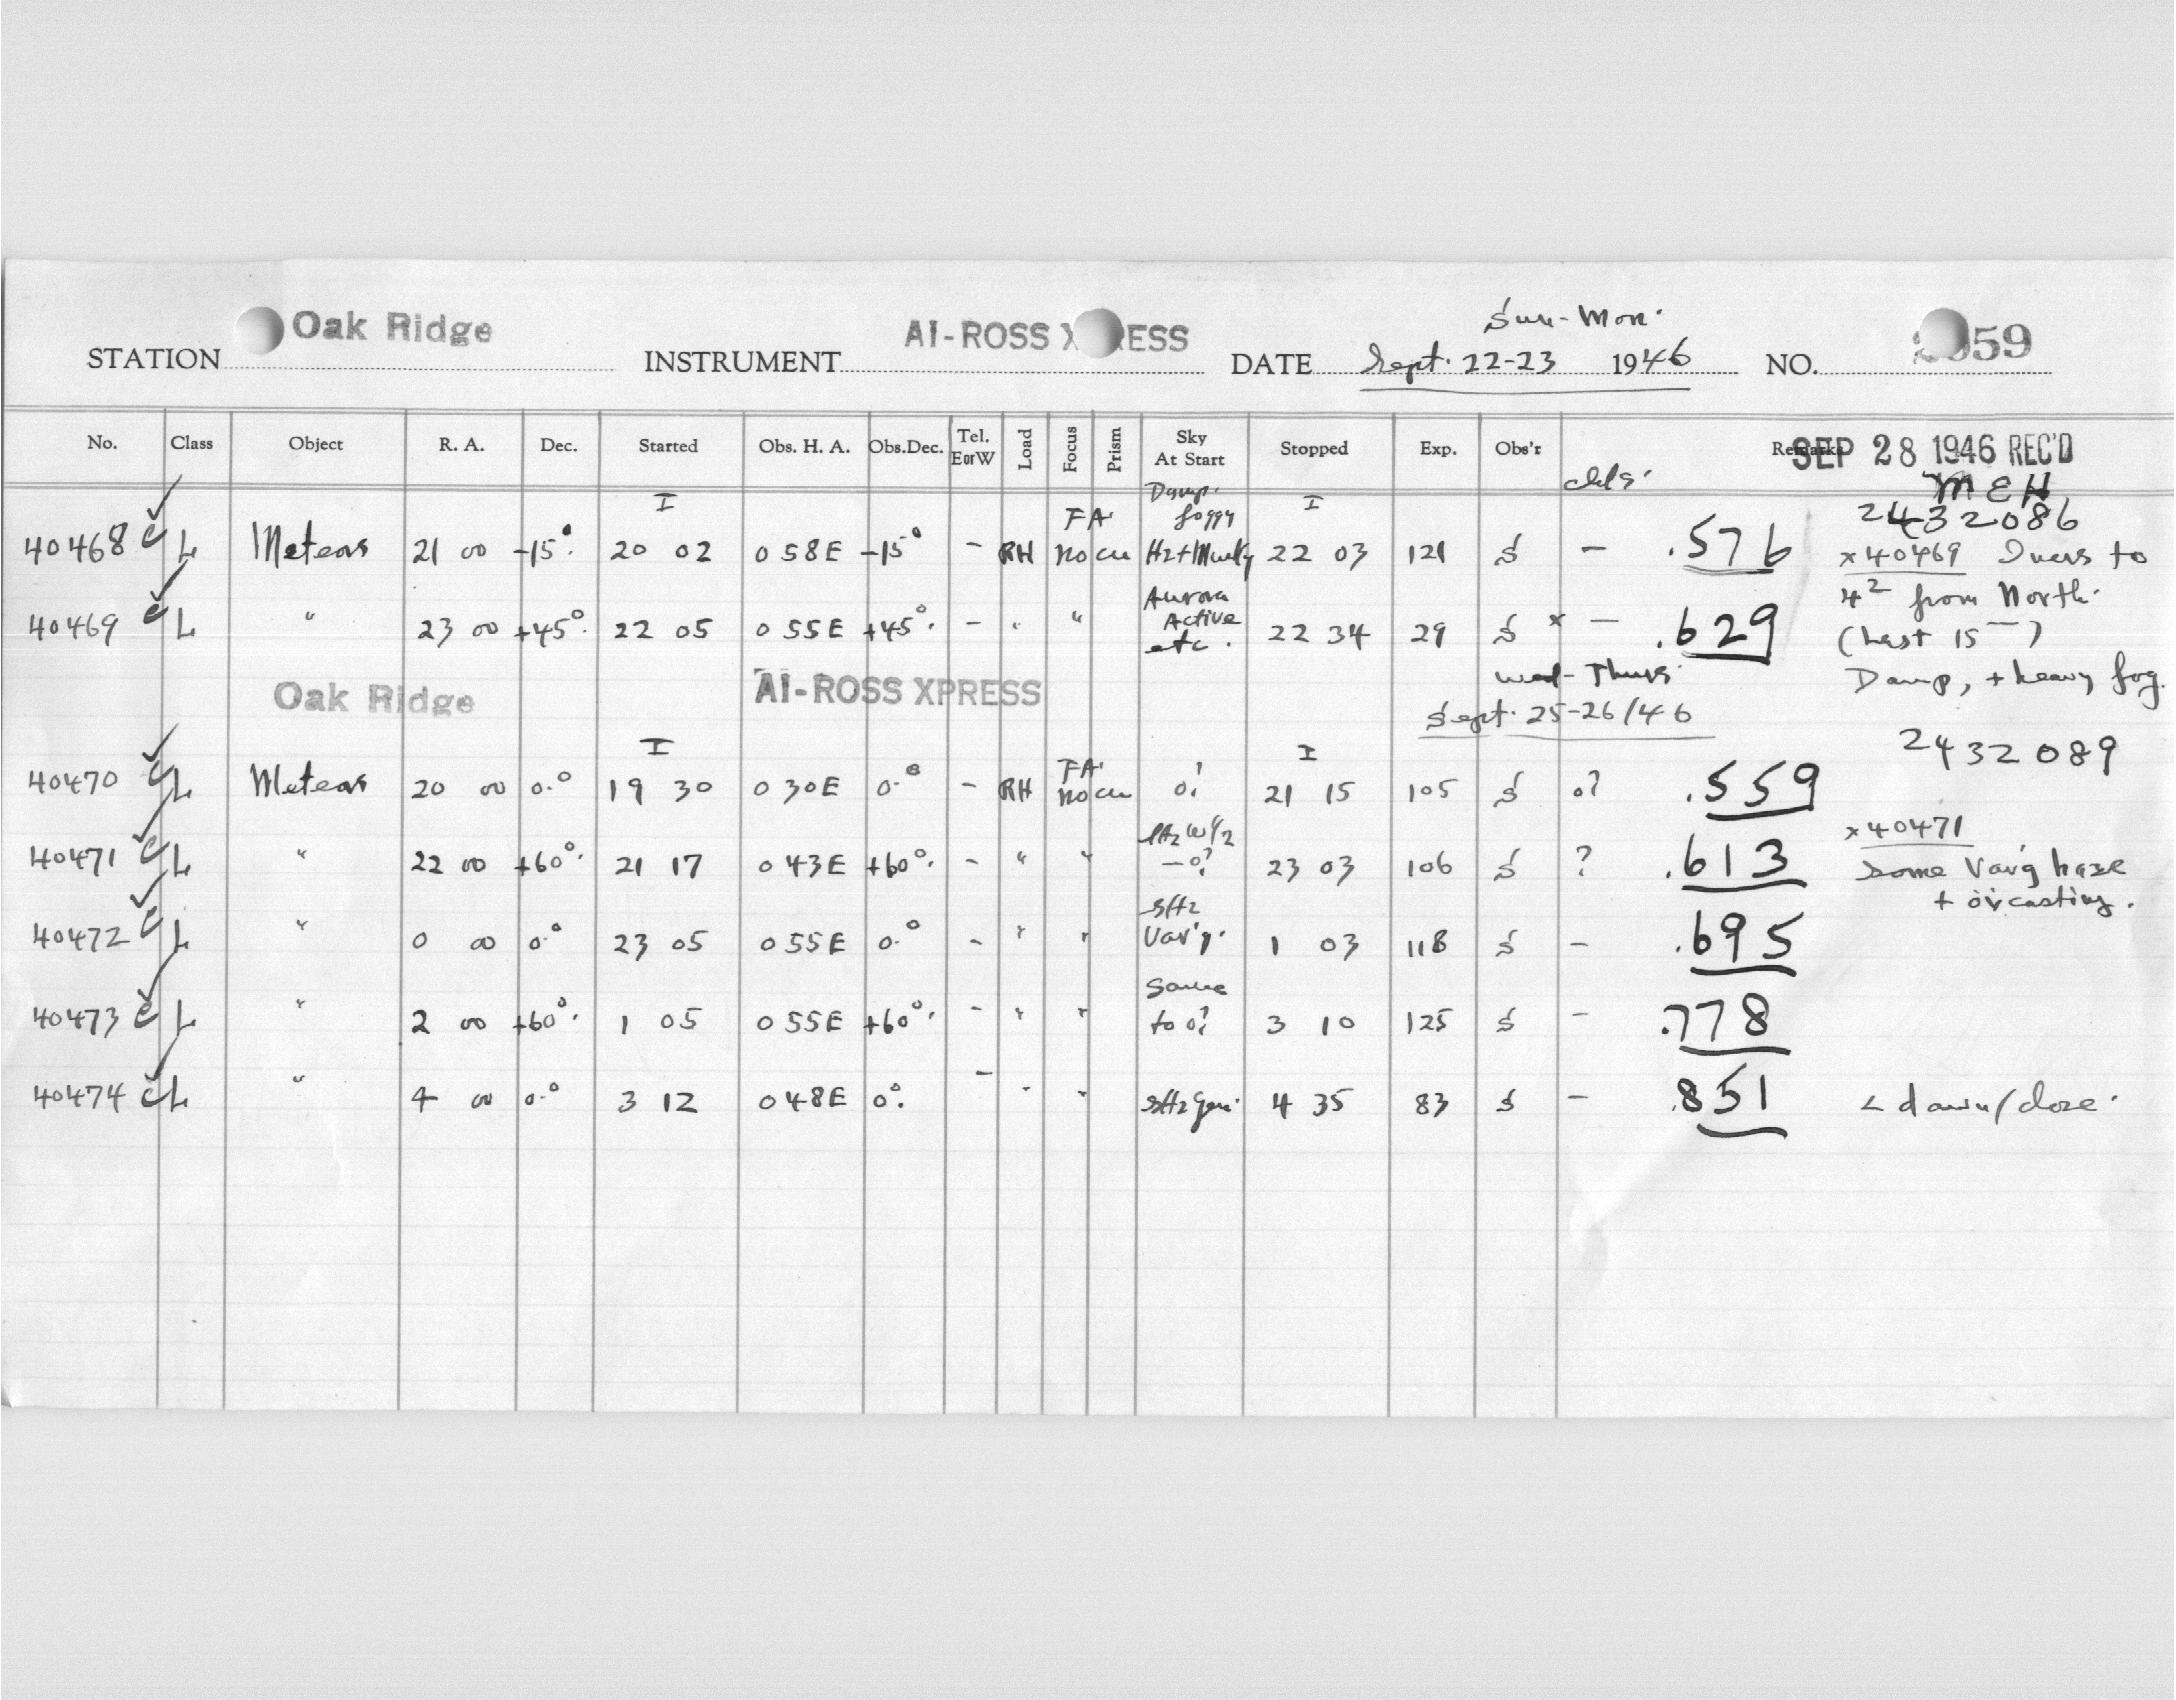 Sun-Mon.
STATION Oak Ridge INSTRUMENT AI-ROSS X RESS DATE Sept. 22-23 1946 NO. 59
No. Class Object R. A. Dec. Started Obs. H. A. Obs.Dec. Tel. E or W Load Focus Prism Sky At Start Stopped Exp. Obs'r Remarks
SEP 28 1946 REC'D
clds. MEH
I Damp. I
FA foggy 2432086
40468 c L Meteors 21 00 -15°. 20 02 0 58E -15° - RH no cu Hz+Murky 22 03 121 S - .576 x40469 to
Aurora 4² from North.
40469 c L " 23 00 +45°. 22 05 0 55E +45°. - " " Active etc. 22 34 29 S x - .629 (Last 15 )
Oak Ridge AI-ROSS XPRESS Wed-Thurs. Damp, + heavy fog.
Sept. 25-26/46
I I 2432089
40470 c L Meteors 20 00 0.° 19 30 0 30E 0.° - RH FA no cu 0? 21 15 105 S 0? .559
40471 c L " 22 00 +60°. 21 17 0 43E +60°. - " " -0? 23 03 106 S ? .613 x40471
some Var'g haze
+ ov'casting.
40472 c L " 0 00 0.° 23 05 0 55E 0.° - " " sHz Var'g. 1 03 118 S - .695
40473 c L " 2 00 +60°. 1 05 0 55E +60°. - " " Same to 0? 3 10 125 S - .778
40474 c L " 4 00 0.° 3 12 0 48E 0°. - " " sHz Gen. 4 35 83 S - .851 < dawn/close.